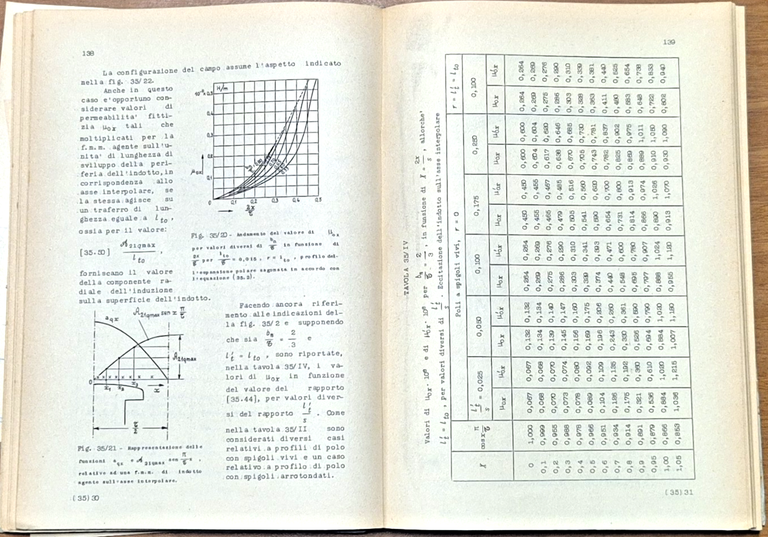 138
La configurazione del campo assume l'aspetto indicato
nella fig. 35/22.
Anche in questo
caso e' opportuno con-
siderare valori di
permeabilita' fitti-
zia μox tali che
moltiplicati per la
f.m.m. agente sull'u-
nita' di lunghezza di
sviluppo della peri-
feria dell'indotto, in
corrispondenza allo
asse interpolare, se
la stessa agisce su
un traferro di lun-
ghezza eguale a lto,
ossia per il valore:
[35.50]
forniscano il valore
della componente ra-
diale dell'induzione
sulla superficie dell'indotto.
H/m
0,5
0,4
0,3
0,2
0,1
0
0,1 0,2 0,3 0,4 0,5
Fig. 35/20 - Andamento del valore di μox
per valori diversi di in funzione di
per = 0,015, r = lto, profilo del-
l'espansione polare sagomata in accordo con
l'equazione (35.3).
Fig. 35/21 - Rappresentazione delle
funzioni
relativo ad una f.m.m. di indotto
agente sull'asse interpolare.
Facendo ancora riferi-
mento alle indicazioni del-
la fig. 35/2 e supponendo
che sia = 2/3 e
l't = lto, sono riportate,
nella tavola 35/IV, i va-
lori di μox in funzione
del valore del rapporto
[35.44], per valori diver-
si del rapporto l't/s. Come
nella tavola 35/II sono
considerati diversi casi
relativi a profili di polo
con spigoli vivi e un caso
relativo a profilo di polo
con spigoli arrotondati.
(35)30
139
TAVOLA 35/IV
Valori di μox · 10⁶ e di μ'ox · 10⁶ per = 2/3, in funzione di X = , allorche'
l't = lto, per valori diversi di l't/s. Eccitazione dell'indotto sull'asse interpolare
Poli a spigoli vivi, r = 0 r = l't = lto
X l't/s = 0,025 0,050 0,100 0,175 0,250 0,100
μox μ'ox μox μ'ox μox μ'ox μox μ'ox μox μ'ox μox μ'ox
0 1,000 0,067 0,067 0,132 0,132 0,264 0,264 0,450 0,450 0,600 0,600 0,264 0,264
0,1 0,999 0,068 0,068 0,134 0,134 0,269 0,269 0,455 0,455 0,604 0,604 0,269 0,269
0,2 0,955 0,070 0,070 0,139 0,140 0,275 0,276 0,465 0,467 0,617 0,620 0,275 0,276
0,3 0,988 0,073 0,074 0,145 0,147 0,286 0,290 0,479 0,485 0,636 0,646 0,286 0,290
0,4 0,978 0,078 0,080 0,156 0,160 0,303 0,310 0,505 0,516 0,670 0,685 0,303 0,310
0,5 0,966 0,089 0,092 0,169 0,175 0,330 0,341 0,541 0,560 0,705 0,730 0,328 0,339
0,6 0,951 0,104 0,109 0,196 0,206 0,374 0,393 0,590 0,620 0,743 0,781 0,363 0,381
0,7 0,934 0,126 0,135 0,243 0,260 0,440 0,471 0,654 0,700 0,782 0,837 0,411 0,440
0,8 0,914 0,175 0,192 0,330 0,361 0,548 0,600 0,731 0,800 0,825 0,902 0,480 0,525
0,9 0,891 0,321 0,360 0,526 0,590 0,695 0,780 0,814 0,913 0,869 0,975 0,583 0,654
0,95 0,879 0,536 0,610 0,694 0,790 0,797 0,907 0,856 0,974 0,889 1,011 0,648 0,738
1,00 0,866 0,884 1,020 0,884 1,020 0,888 1,024 0,890 1,026 0,910 1,050 0,833
1,05 0,853 1,036 1,215 1,007 1,180 0,955 1,120 0,913 1,070 0,930 1,090 0,802 0,940
(35)31